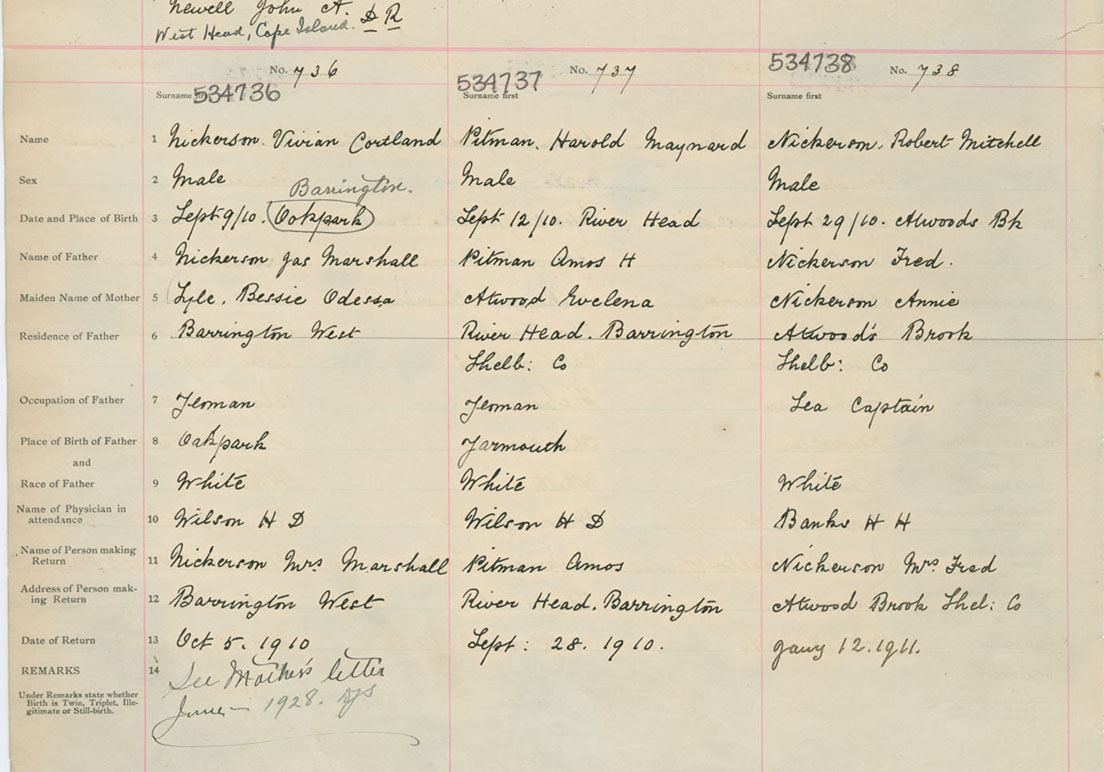 Newell John A. D R
West Head, Cape Island.
No. 736 No. 737 No. 738
534736 534737 534738
Surname Surname first Surname first
Name 1 Nickerson. Vivian Cortland Pitman. Harold Maynard Nickerson. Robert Mitchell
Sex 2 Male Male Male
Barrington.
Date and Place of Birth 3 Sept 9/10. Oakpark Sept 12/10. River Head Sept 29/10. Atwoods Bk
Name of Father 4 Nickerson Jas Marshall Pitman Amos H Nickerson Fred.
Maiden Name of Mother 5 Lyle. Bessie Odessa Atwood Evelena Nickerson Annie
Residence of Father 6 Barrington West River Head. Barrington Atwood's Brook
Shelb: Co Shelb: Co
Occupation of Father 7 Yeoman Yeoman Sea Captain
Place of Birth of Father 8 Oakpark Yarmouth
and
Race of Father 9 White White White
Name of Physician in
attendance 10 Wilson H D Wilson H D Banks H H
Name of Person making
Return 11 Nickerson Mrs Marshall Pitman Amos Nickerson Mrs Fred
Address of Person mak-
ing Return 12 Barrington West River Head. Barrington Atwood Brook Shel: Co
Date of Return 13 Oct 5. 1910 Sept: 28. 1910. Jany 12. 1911.
REMARKS 14 See Mother's letter
Under Remarks state whether
Birth is Twin, Triplet, Ille-
gitimate or Still-birth.
June 1928.